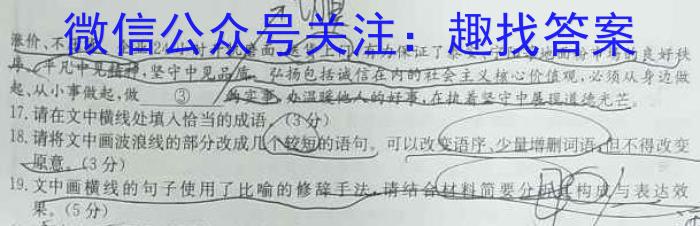 微信公众号关注：趣找答案
涨价、不 24小时 磨面、送货上门，有力保证了 地面粉市场的良好秩
序。平凡中见精神，坚守中见品质。弘扬包括诚信在内的社会主义核心价值观，必须从身边做
起，从小事做起，做 ③ 的实事，办温暖他人的好事，在执着坚守中展现道德光芒。
17.请在文中横线处填入恰当的成语。（3分）
18.请将文中画波浪线的部分改成几个较短的语句。可以改变语序、少量增删词语，但不得改变
原意。（3分）
19.文中画横线的句子使用了比喻的修辞手法，请结合材料简要分析其构成与表达效
果。（5分）